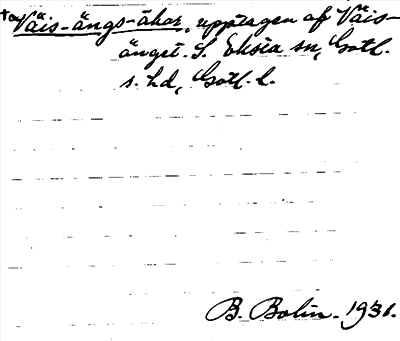 Väis-ängs-åkar, upptagen af Väis-
änget. S. Eksta sn, Gotl.
s. hd, Gotl. l.
B. Bolin. 1931.